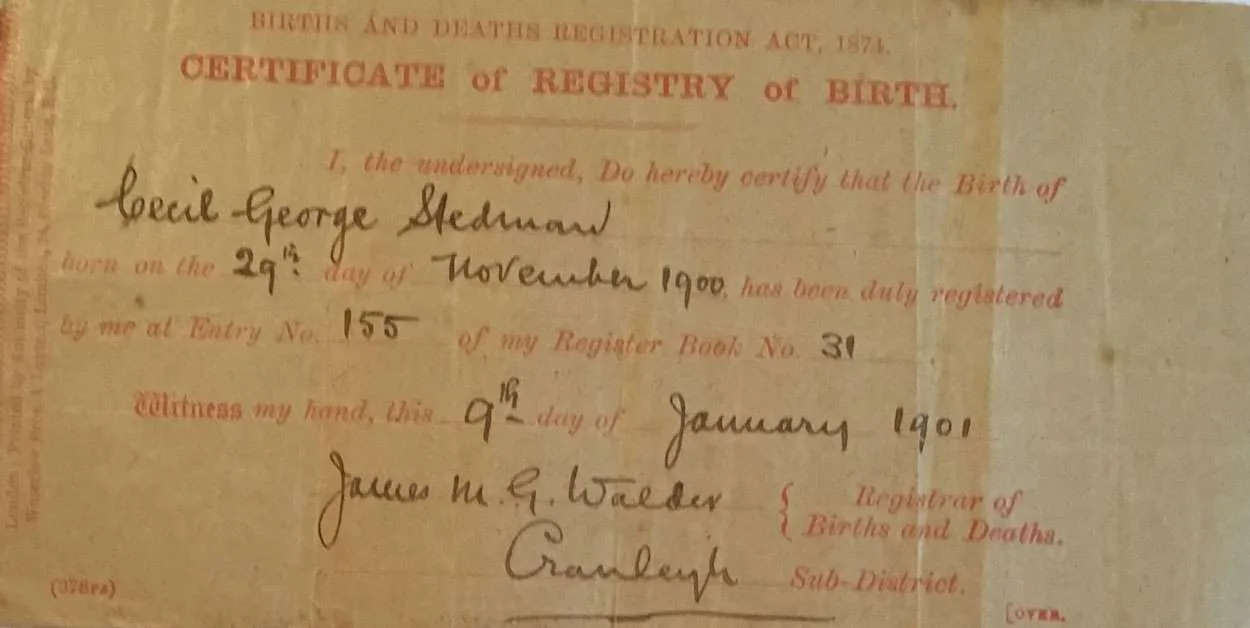 BIRTHS AND DEATHS REGISTRATION ACT, 1874.
CERTIFICATE of REGISTRY of BIRTH.
I, the undersigned, Do hereby certify that the Birth of
Cecil George Stedman
born on the 29th day of November 1900, has been duly registered
by me at Entry No. 155 of my Register Book No. 31
Witness my hand, this 9th day of January 1901
James M. G. Walder { Registrar of
Births and Deaths.
Cranleigh Sub-District.
[OVER.